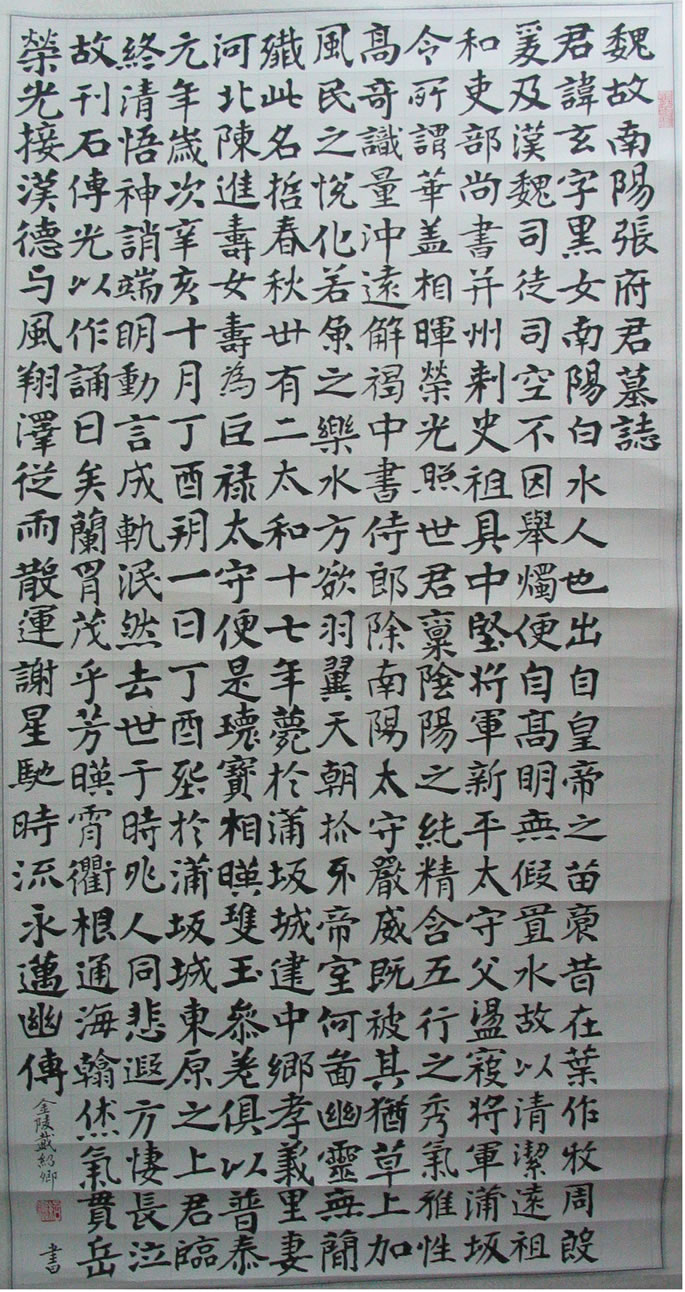 魏故南陽張府君墓誌
君諱玄字黑女南陽白水人也出自皇帝之苗裔昔在葉作牧周殷
爰及漢魏司徒司空不因舉燭便自高明無假置水故以清潔遠祖
和吏部尚書并州刺史祖具中堅將軍新平太守父盪寇將軍蒲坂
令所謂華蓋相暉榮光照世君稟陰陽之純精含五行之秀氣雅性
高奇識量沖遠解褐中書侍郎除南陽太守嚴威既被其猶草上加
風民之悅化若魚之樂水方欲羽翼天朝抓牙帝室何啚幽靈無簡
殲此名哲春秋卅有二太和十七年薨於蒲坂城建中鄉孝義里妻
河北陳進壽女壽為巨祿太守便是瓌寶相暎雙玉參差俱以普泰
元年歲次辛亥十月丁酉朔一日丁酉塟於蒲坂城東原之上君臨
終清悟神誚端明動言成軌泯然去世于時兆人同悲遐方悽長泣
故刊石傳光以作誦曰矣蘭冑茂乎芳暎霄衢根通海翰烋氣貫岳
榮光接漢德与風翔澤從雨散運謝星馳時流永邁幽傳
金陵戴紹卿書